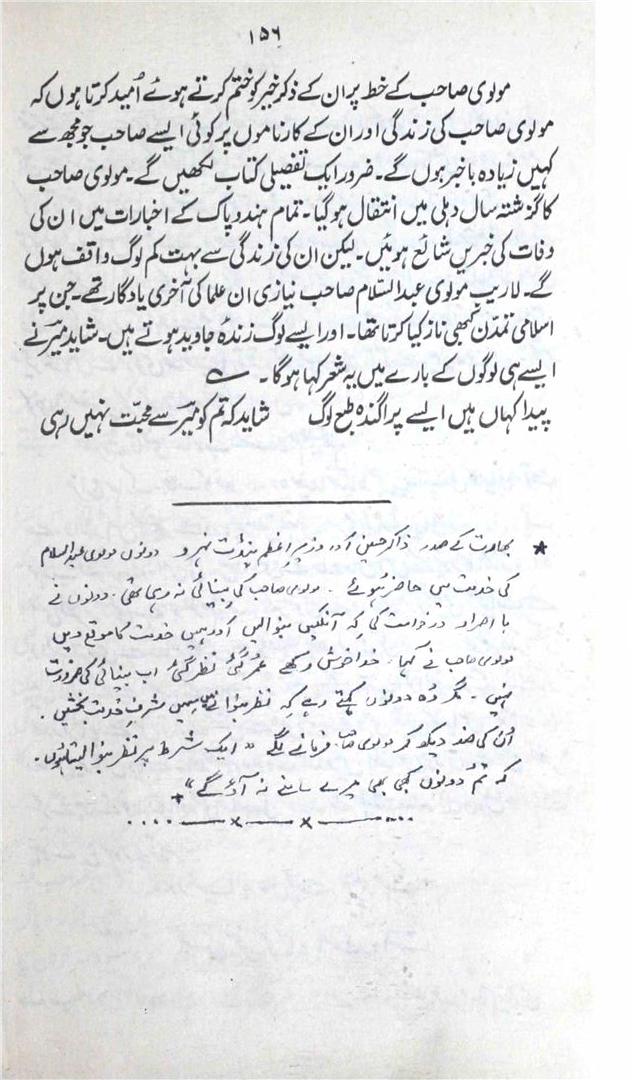 ۱۵۶
مولوی صاحب کے خط پر ان کے ذکر خیر کو ختم کرتے ہوئے اُمید کرتا ہوں کہ
مولوی صاحب کی زندگی اور ان کے کارناموں پر کوئی ایسے صاحب جو مجھ سے
کہیں زیادہ باخبر ہوں گے۔ ضرور ایک تفصیلی کتاب لکھیں گے۔ مولوی صاحب
کا گزشتہ سال دہلی میں انتقال ہو گیا۔ تمام ہند و پاک کے اخبارات میں ان کی
وفات کی خبریں شائع ہوئیں۔ لیکن ان کی زندگی سے بہت کم لوگ واقف ہوں
گے۔ لاریب مولوی عبدالسلام صاحب نیازی ان علما کی آخری یادگار تھے۔ جن پر
اسلامی تمدّن کبھی ناز کیا کرتا تھا۔ اور ایسے لوگ زندۂ جاوید ہوتے ہیں۔ شاید میرؔ نے
ایسے ہی لوگوں کے بارے میں یہ شعر کہا ہوگا۔
پیدا کہاں ہیں ایسے پراگندہ طبع لوگ شاید کہ تم کو میرؔ سے محبّت نہیں رہی
★ بھارت کے صدر ذاکر حسین اور وزیر اعظم پنڈت نہرو دونوں مولوی عبدالسلام
کی خدمت میں حاضر ہوئے ۔ مولوی صاحب کی بینائی نہ رہی تھی۔ دونوں نے
با اصرار درخواست کی کہ آنکھیں بنوا لیں اور ہمیں خدمت کا موقع دیں
مولوی صاحب نے کہا۔ خدا خوش رکھے عمر گئی نظر گئی اب بینائی کی ضرورت
نہیں ۔ مگر وہ دونوں کہتے رہے کہ نظر بنوانے میں ہمیں شرفِ خدمت بخشیں ۔
اُن کی ضد دیکھ کر مولوی صاؔ فرمانے لگے " ایک شرط پر نظر بنوا لیتا ہوں۔
کہ تم دونوں کبھی بھی میرے سامنے نہ آؤ گے "